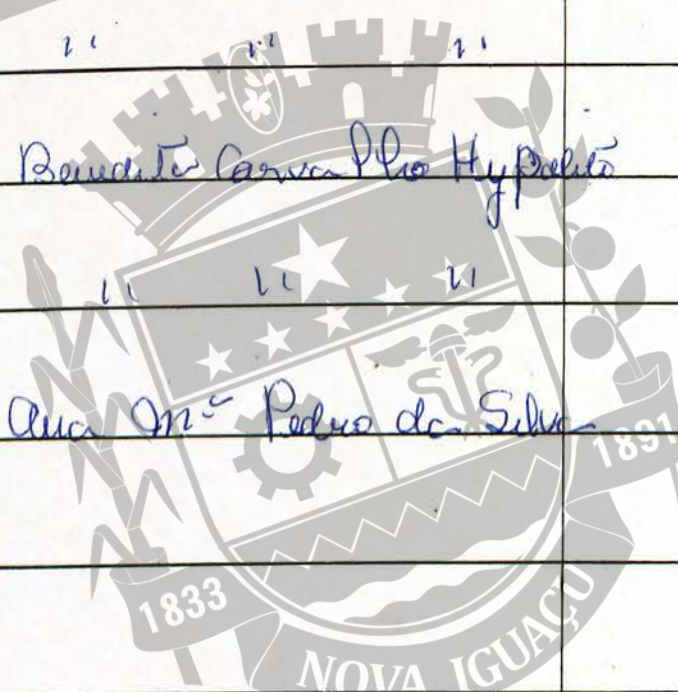 " " "
Benedito Carvalho Hypolito
" " "
Ana Mª Pedro da Silva
1891
1833
NOVA IGUAÇU